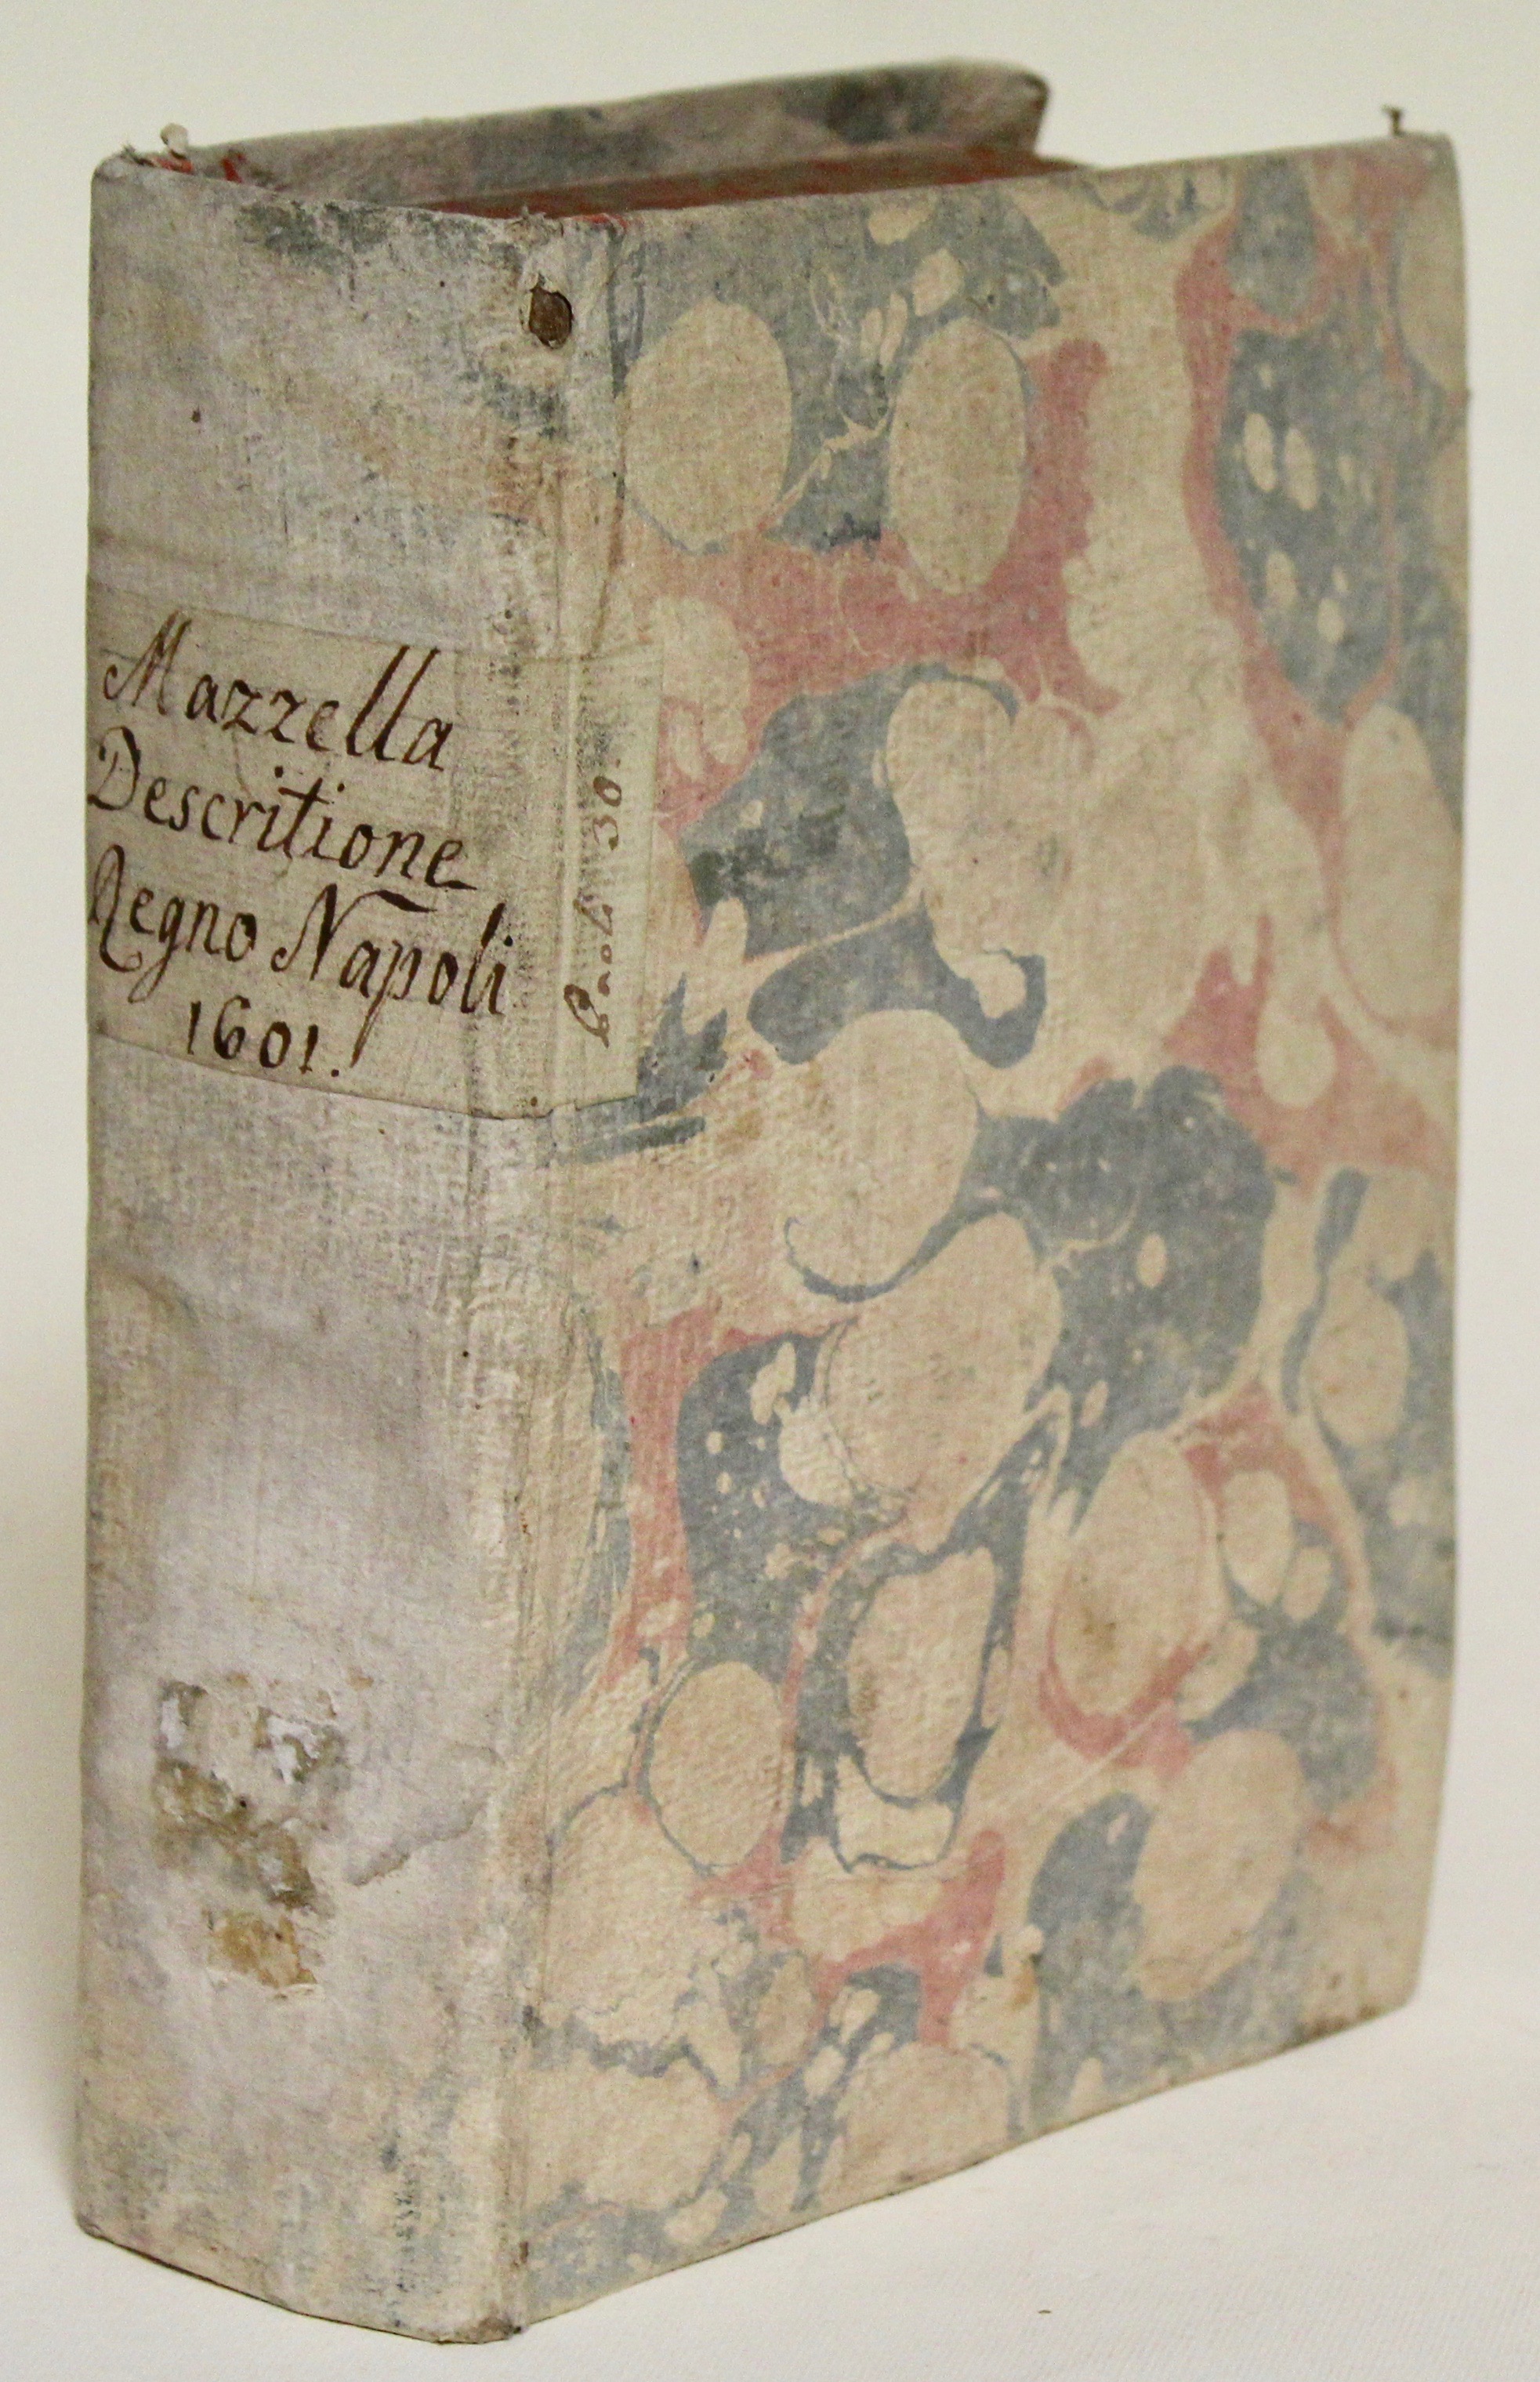 Mazzella
Descritione
Regno Napoli
1601.
Paoli 30.